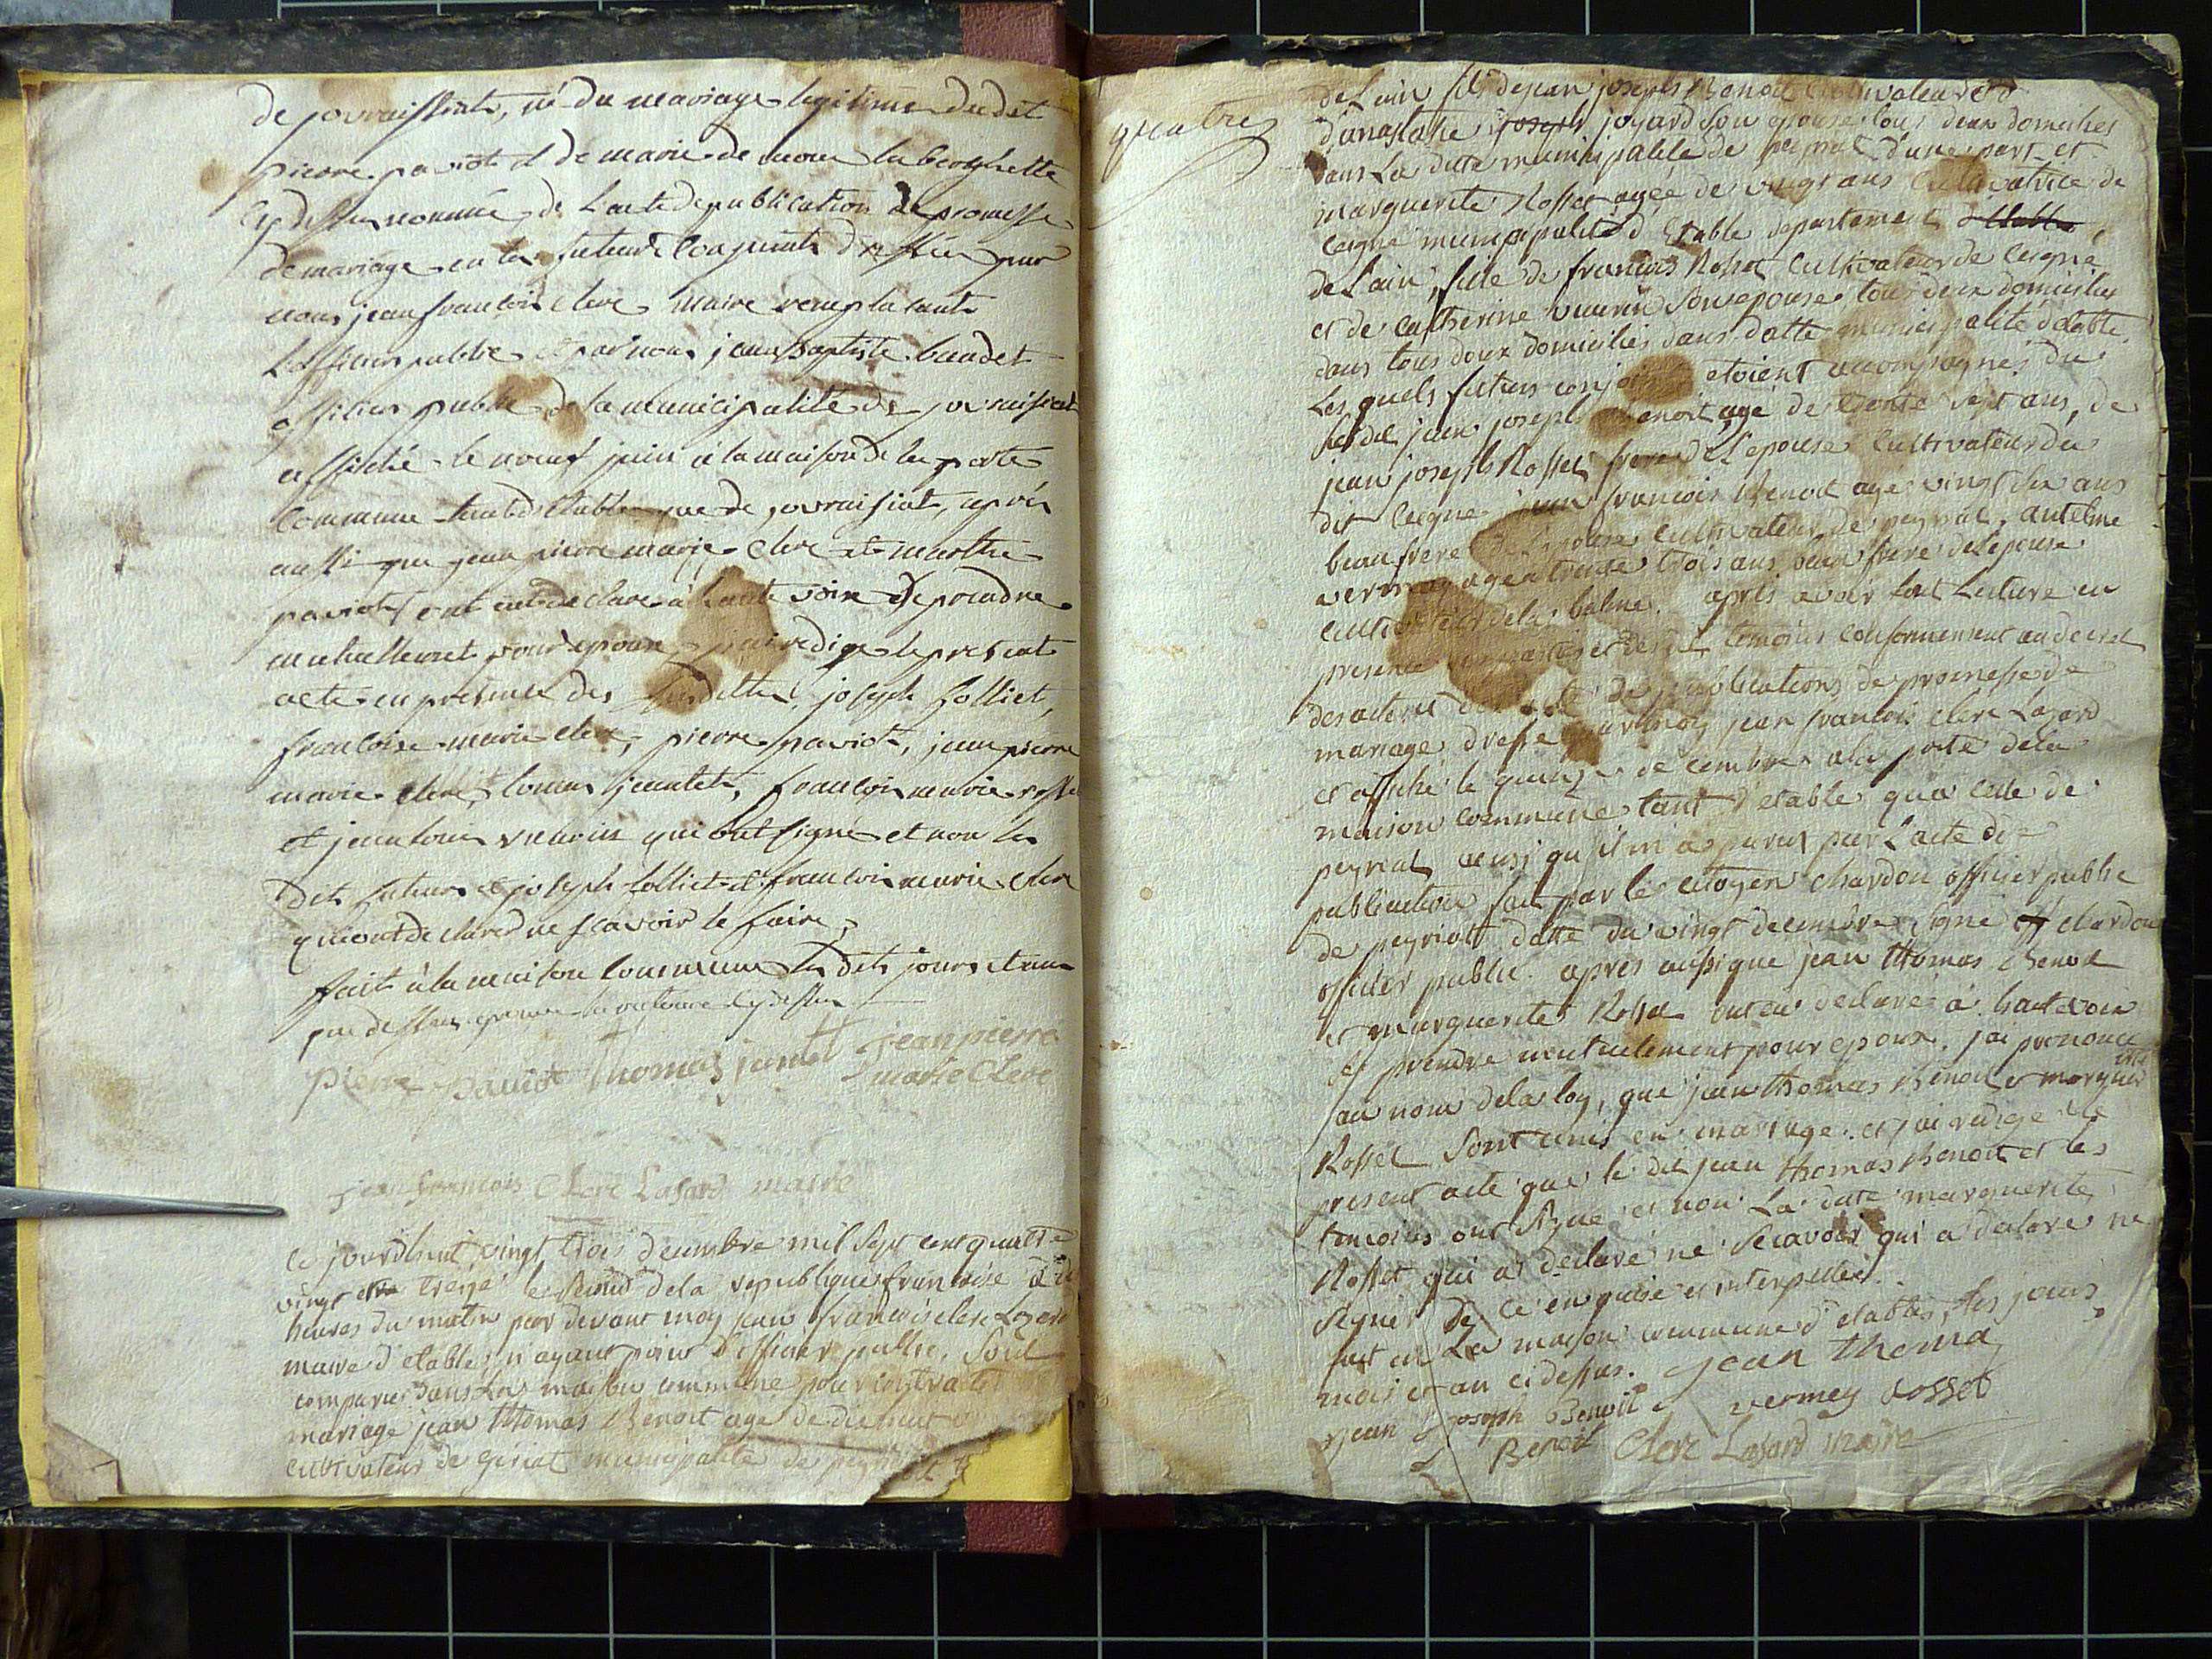 de jouvraissiat, né du mariage legitime dudit
pierre paviot et de marie de nom la
cy dessus nommé, de l'acte de publication de promesse
de mariage en les futurs conjoints dressée par
nous jean francois clerc maire remplacant
l'officier public et par nous jean baptiste baudet
officier public de la municipalité de jouvraissiat
affiché le neuf juin à la maison de la porte
commune tant d'Etable que de jouvraissiat, après
aussi que jean pierre marie clerc et marthe
paviot ont eut declare à haute voix de prendre
mutuellement pour epoux, j'ai redigé le present
acte en presence des susdittes, joseph folliet,
francoise marie clerc, pierre paviot, jean pierre
marie clerc, jeantet, francois marie
et jean louis vuarin qui ont signé et non les
dits futurs et joseph folliet et francois marie clerc
qui ont declaré ne scavoir le faire,
fait à la maison commune les dits jours et an
que dessus
pierre paviot thomas jantet jean pierre
marie Clerc
jean francois Clerc Lasard maire
ce jourdhuit vingt trois decembre mil sept cent quatre
vingt treize le second de la republique francoise à
heures du matin par devant moy jean francois clerc Lazard
maire d'etables n'ayant point d'officier public, sont
comparus dans la maison commune pour contracter
mariage jean thomas Benoit agé de dixhuit
cultivateur de giriat municipalité de
quatre
de Lain fils de jean joseph Benoit cultivateur et
d'anastasie joseph joyard son epouse tous deux domicilies
dans La dite municipalité de peyriat d'une part et
marguerite Rosset agée de vingt ans cultivatrice de
ceigne municipalité d'Etable departement
de L'ain, fille de francois Rosset cultivateur de ceigne
et de catherine vuarin son epouse, tous deux domicilies
dans tous deux domiciliés dans datte municipalité d'etable
Lesquels futurs conjoints etoient accompagnés du
susdit jean joseph Benoit agé de trente sept ans, de
jean joseph Rosset frere de L'epouse cultivateur du
dit ceigne jean francois Benoit agé vingt six ans
beaufrere de L'epouse cultivateur de peyriat, antelme
vermey agé trente trois ans beau frere de L'epouse
cultivateur de la balme. après avoir fait Lecture en
presence des parties et des temoins conformement au decret
des actes de publications de promesse de
mariage dressé par moy jean francois clerc Lazard
et affiché le quinze decembre a la porte de la
maison commune tant d'etable qua celle de
peyriat ainsi qu'il m'a paru par L'acte de
publication fait par le citoyen chardon officier public
de peyriat datté du vingt decembre signé chardon
officier public. après aussi que jean thomas Benoit
et marguerite Rosset ont eu declaré à haute voix
se prendre mutuelement pour epoux. j'ai prononcé
au nom de la loy, que jean thomas Benoit et marguerite
Rosset sont unis en mariage. et j'ai redigé le
present acte que le dit jean thomas Benoit et les
temoins ont signé et non La dite marguerite
Rosset qui a declaré ne scavoir qui a declaré ne
signer de ce enquise et interpellée.
fait en La maison commune d'etables, les jours
mois et an ci dessus. jean thoma
jean joseph Benoit vermey rosset
Benoit Clerc Lasard maire